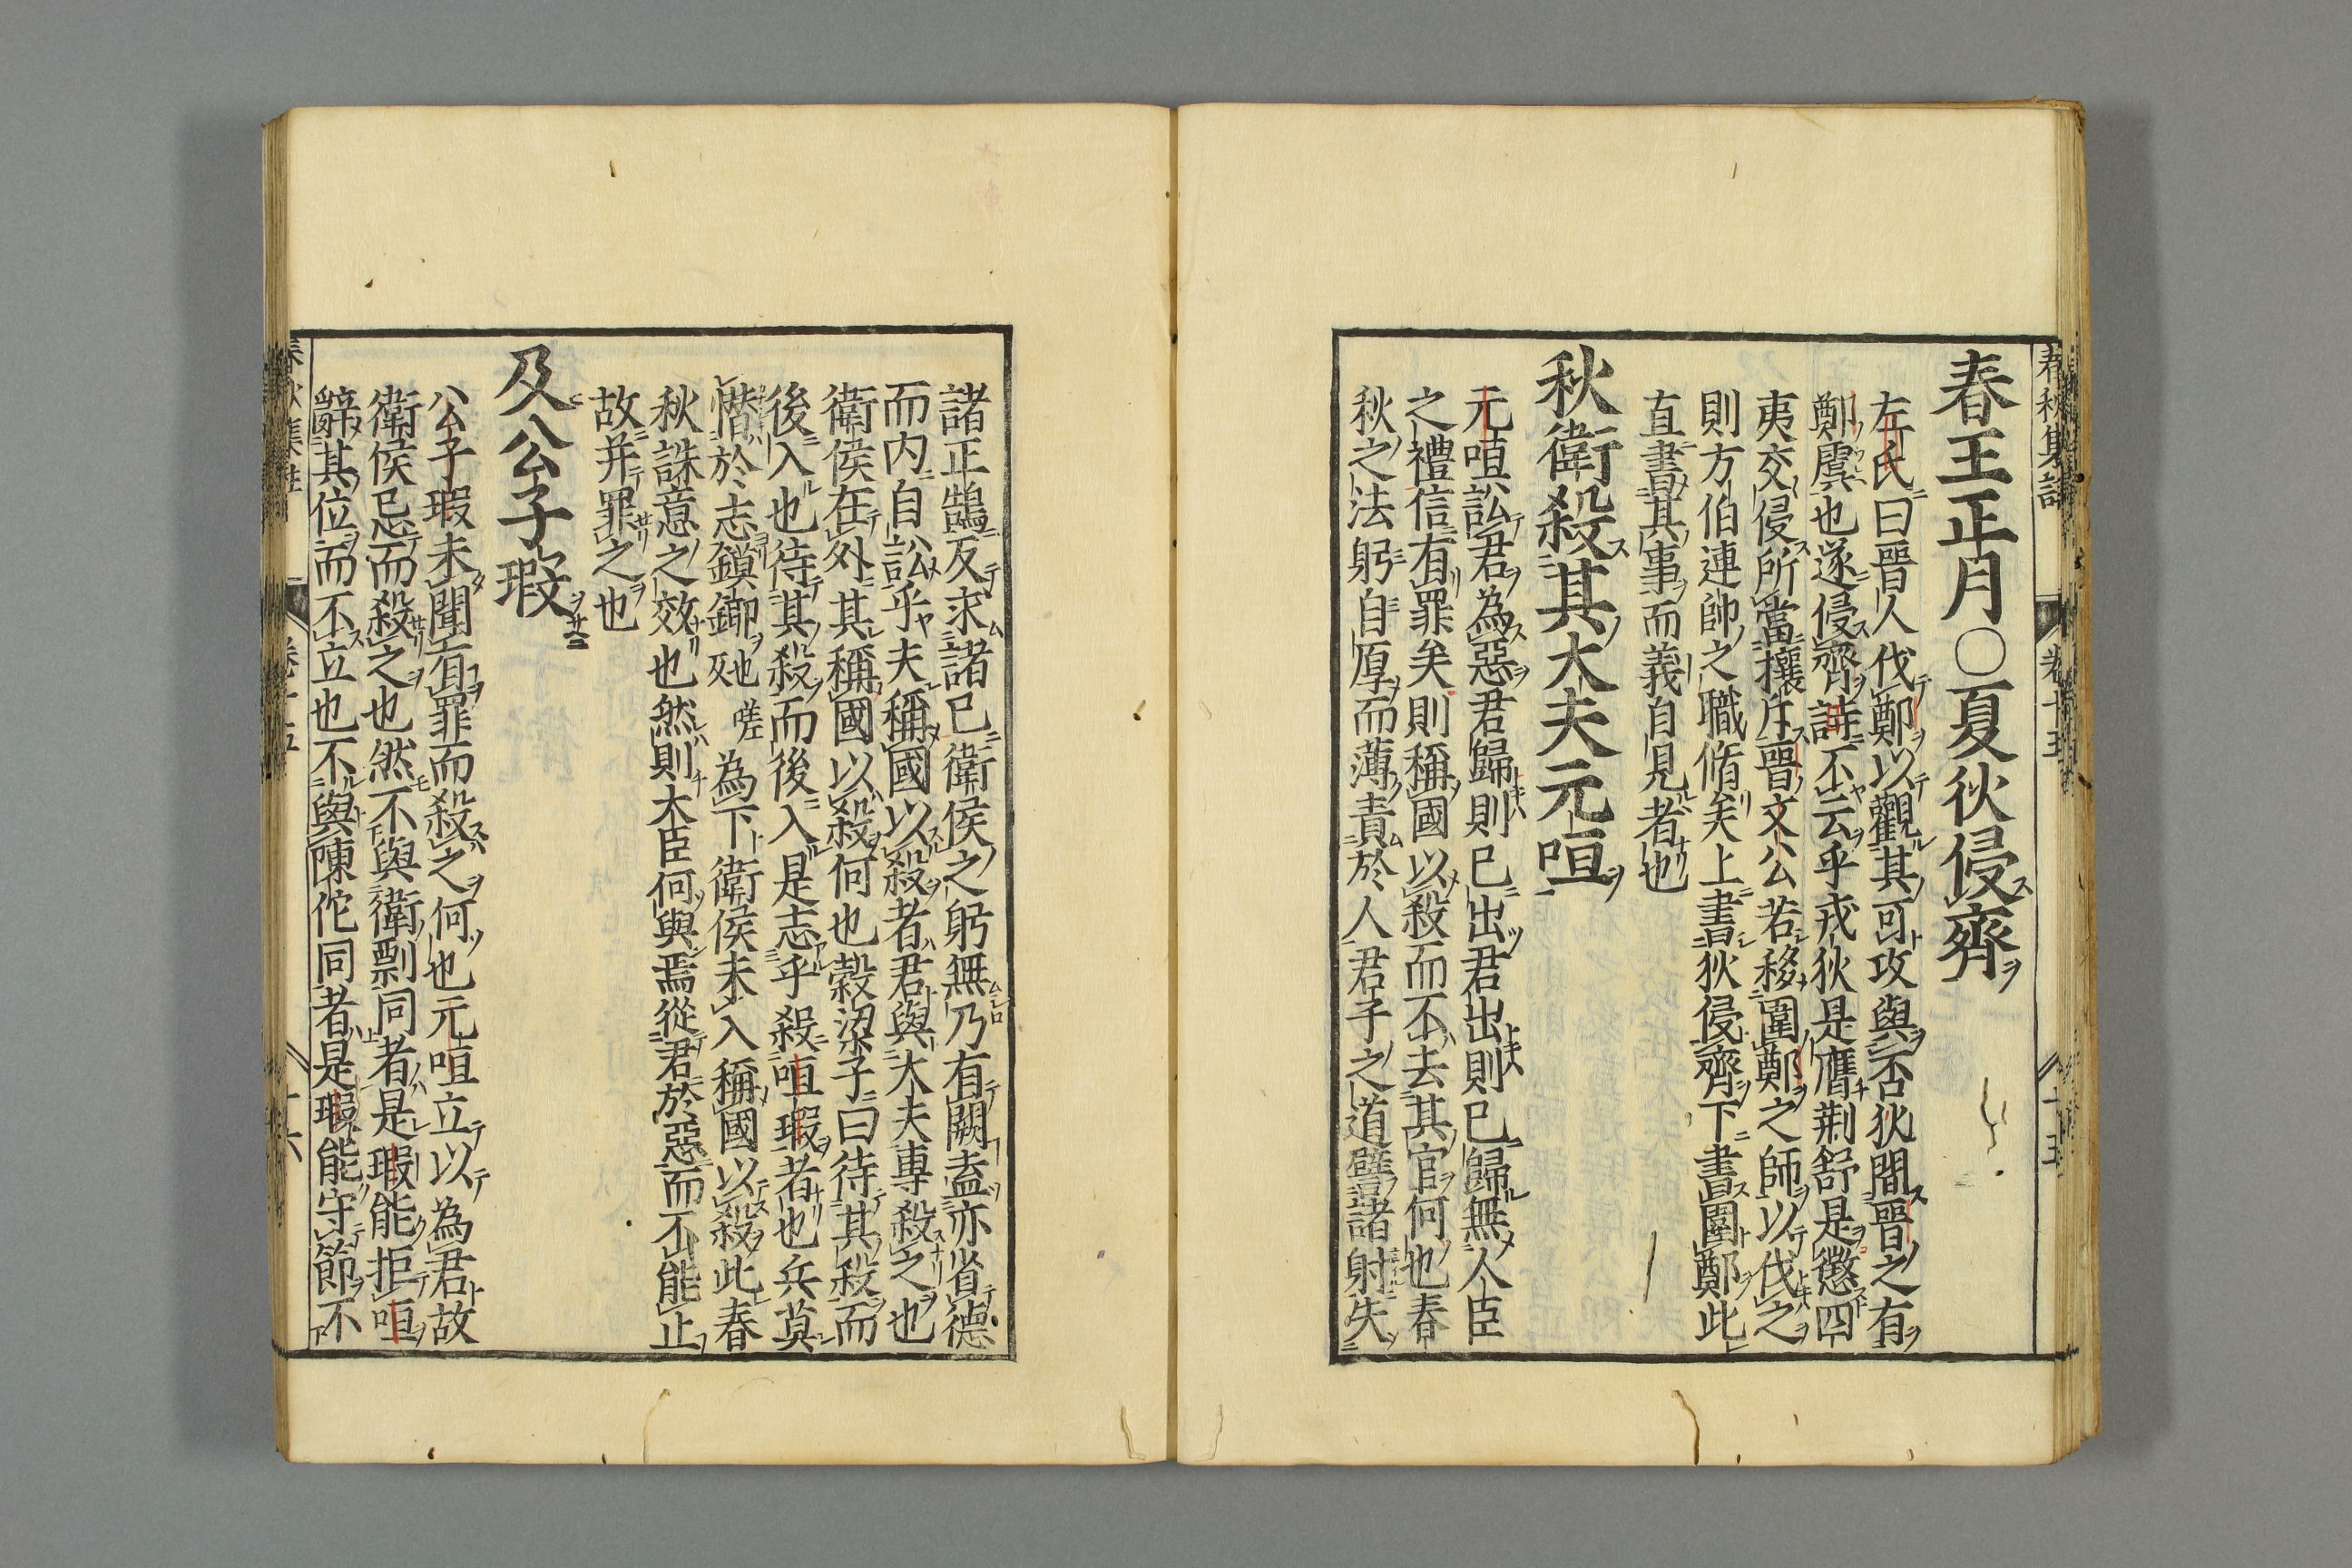 春秋集註 卷十五 十五
春王正月○夏狄侵齊
左氏曰晉人伐鄭以觀其可攻與否狄間晉之有
鄭虞也遂侵齊詩不云乎戎狄是膺荆舒是懲四
夷交侵所當攘斥晉文公若移圍鄭之師以伐之
則方伯連帥之職脩矣上書狄侵齊下書圍鄭此
直書其事而義自見者也
秋衛殺其大夫元咺
元咺訟君為惡君歸則已出君出則已歸無人臣
之禮信有罪矣則稱國以殺而不去其官何也春
秋之法躬自厚而薄責於人君子之道譬諸射失
諸正鵠反求諸已衛侯之躬無乃有闕盍亦省德
而内自訟乎夫稱國以殺者君與大夫專殺之也
衛侯在外其稱國以殺何也穀梁子曰待其殺而
後入也待其殺而後入是志乎殺咺瑕者也兵莫
憯於志鏌鋣為下衛侯未入稱國以殺此春
秋誅意之效也然則大臣何與焉從君於惡而不能止
故并罪之也
及公子瑕
公子瑕未聞有罪而殺之何也元咺立以為君故
衛侯忌而殺之也然不與衛剽同者是瑕能拒咺
辭其位而不立也不與陳佗同者是瑕能守節不
春秋集註 卷十五 十六